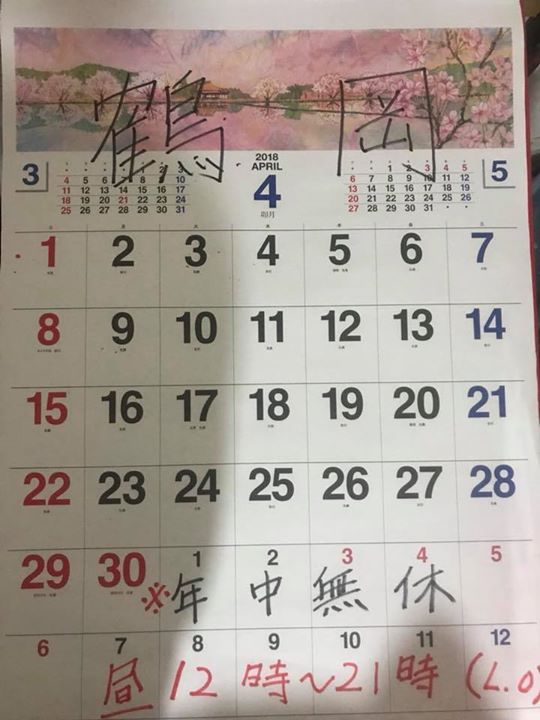 鶴岡
3
2018
APRIL
4
卯月
5
4 5 6 7 8 9 10
11 12 13 14 15 16 17
18 19 20 21 22 23 24
25 26 27 28 29 30 31
6 7 8 9 10 11 12
13 14 15 16 17 18 19
20 21 22 23 24 25 26
27 28 29 30 31
1 2 3 4 5 6 7
8 9 10 11 12 13 14
15 16 17 18 19 20 21
22 23 24 25 26 27 28
29 30 1 2 3 4 5
※年中無休
6 7 8 9 10 11 12
昼12時~21時(L.O)